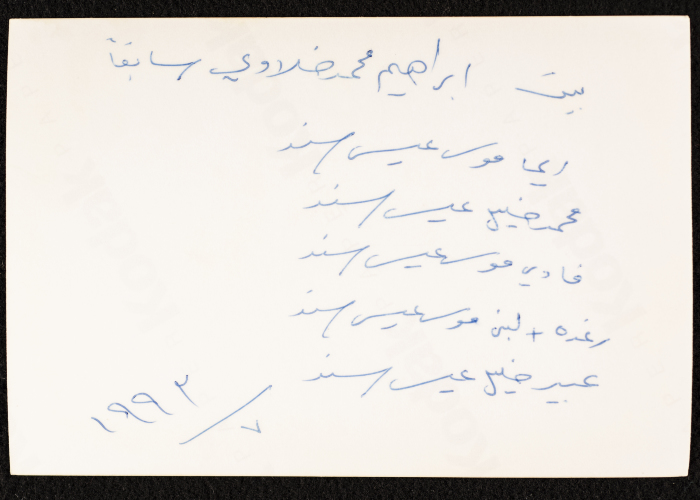 بيت ابراهيم محمد خلاوي سابقاً
ايما موسى عيسى سند
محمد خليل عيسى سند
فادي موسى عيسى سند
رغده + لبنى موسى عيسى سند
عبير خليل عيسى سند
٧/١٩٩٣